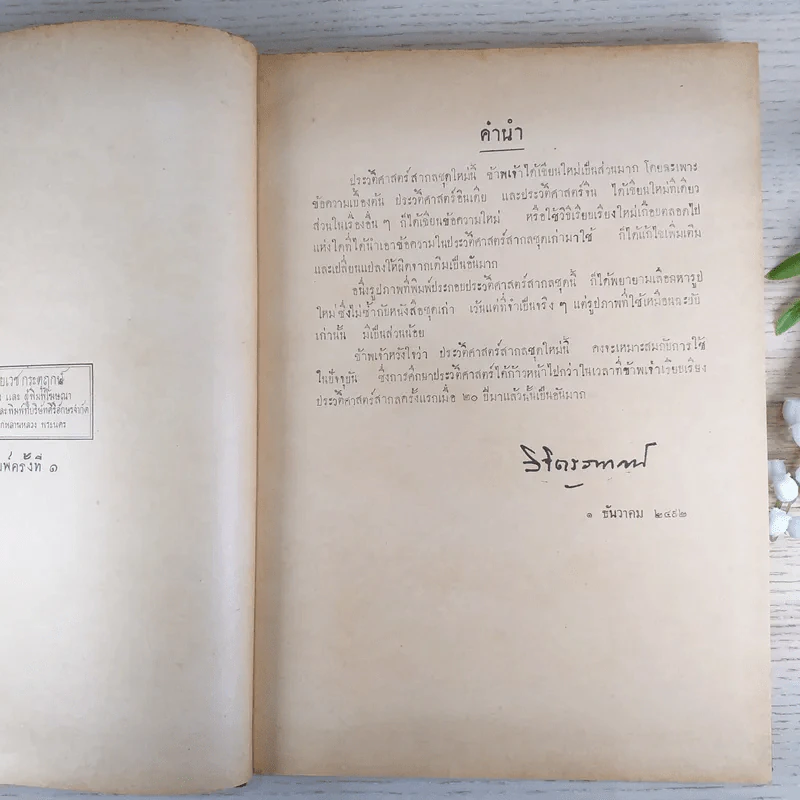 ยเวช กระตุฤกษ์
ง และ ผู้พิมพ์โฆษณา
ละพิมพ์ที่บริษัทศิริอักษรจำกัด
พลานหลวง พระนคร
มพ์ครั้งที่ ๑
คำนำ
ประวัติศาสตร์สากลชุดใหม่นี้ ข้าพเจ้าได้เขียนใหม่เป็นส่วนมาก โดยฉะเพาะ
ข้อความเบื้องต้น ประวัติศาสตร์อินเดีย และประวัติศาสตร์จีน ได้เขียนใหม่ทีเดียว
ส่วนในเรื่องอื่น ๆ ก็ได้เขียนข้อความใหม่ หรือใช้วิธีเรียบเรียงใหม่เกือบตลอดไป
แห่งใดที่ได้นำเอาข้อความในประวัติศาสตร์สากลชุดเก่ามาใช้ ก็ได้แก้ไขเพิ่มเติม
และเปลี่ยนแปลงให้ผิดจากเดิมเป็นอันมาก
อนึ่งรูปภาพที่พิมพ์ประกอบประวัติศาสตร์สากลชุดนี้ ก็ได้พยายามเลือกหารูป
ใหม่ซึ่งไม่ซ้ำกับหนังสือชุดเก่า เว้นแต่ที่จำเป็นจริง ๆ แต่รูปภาพที่ใช้เหมือนฉะบับ
เก่านั้น มีเป็นส่วนน้อย
ข้าพเจ้าหวังใจว่า ประวัติศาสตร์สากลชุดใหม่นี้ คงจะเหมาะสมกับการใช้
ในปัจจุบัน ซึ่งการศึกษาประวัติศาสตร์ได้ก้าวหน้าไปกว่าในเวลาที่ข้าพเจ้าเรียบเรียง
ประวัติศาสตร์สากลครั้งแรกเมื่อ ๒๐ ปีมาแล้วนั้นเป็นอันมาก
๑ ธันวาคม ๒๔๙๒